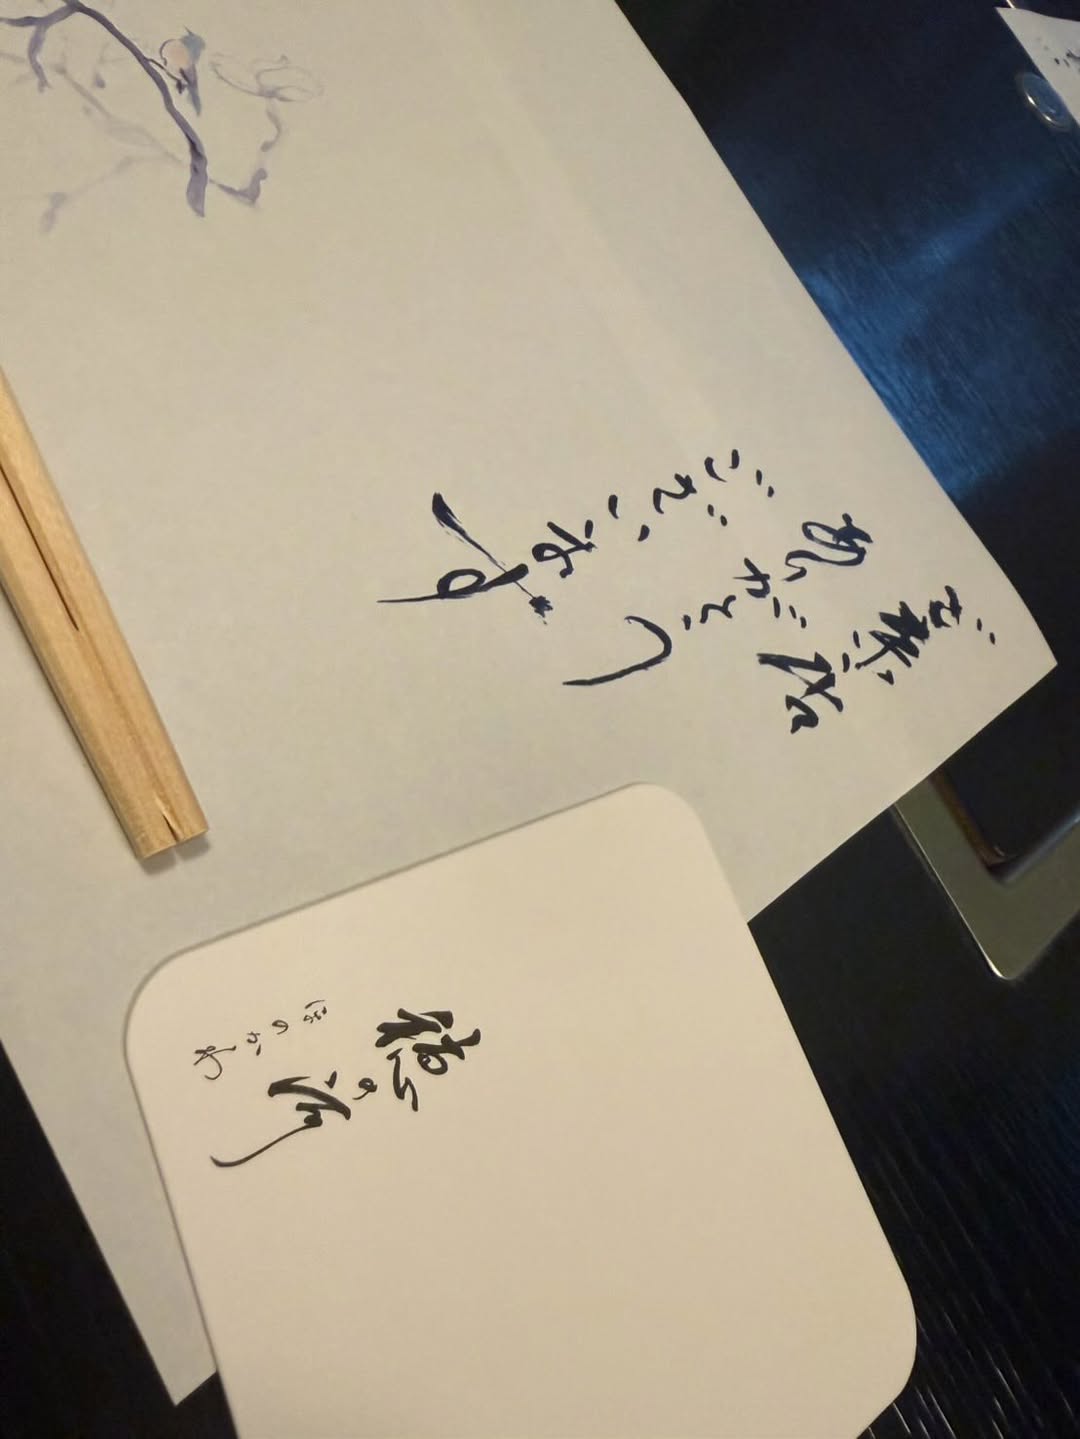 ご来店
ありがとう
ございます
穂の河
ほのかわ